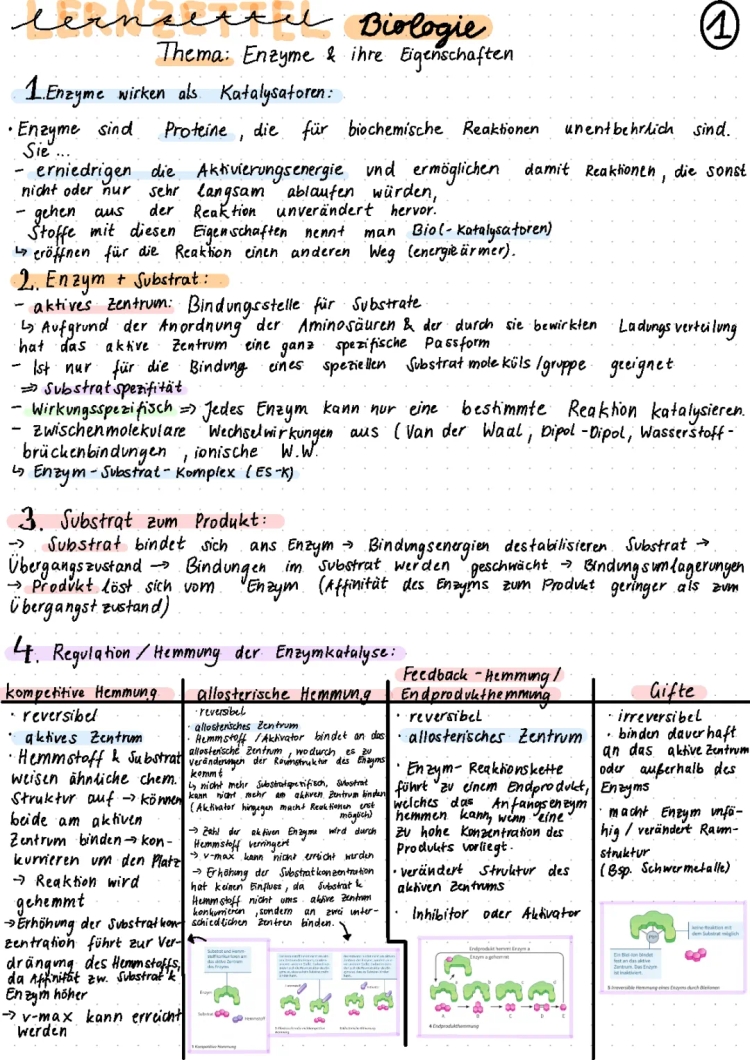 LERNZETTEL
lernzettel Biologie
1
Thema: Enzyme & ihre Eigenschaften
1. Enzyme wirken als Katalysatoren:
· Enzyme sind Proteine, die für biochemische Reaktionen unentbehrlich sind.
Sie ...
- erniedrigen die Aktivierungsenergie und ermöglichen damit Reaktionen, die sonst
nicht oder nur sehr langsam ablaufen würden,
- gehen aus der Reaktion unverändert hervor.
Stoffe mit diesen Eigenschaften nennt man Bio(-Katalysatoren)
↳ eröffnen für die Reaktion einen anderen Weg (energieärmer).
2. Enzym + Substrat:
- aktives Zentrum: Bindungsstelle für Substrate
↳ Aufgrund der Anordnung der Aminosäuren & der durch sie bewirkten Ladungsverteilung
hat das aktive Zentrum eine ganz spezifische Passform
- Ist nur für die Bindung eines speziellen Substratmoleküls/gruppe geeignet
⇒ Substratspezifität
- Wirkungsspezifisch ⇒ Jedes Enzym kann nur eine bestimmte Reaktion katalysieren.
- zwischenmolekulare Wechselwirkungen aus (Van der Waal, Dipol-Dipol, Wasserstoff-
brückenbindungen, ionische W.W.
↳ Enzym-Substrat-Komplex (ES-K)
3. Substrat zum Produkt:
→ Substrat bindet sich ans Enzym → Bindungsenergien destabilisieren Substrat →
Übergangszustand → Bindungen im Substrat werden geschwächt → Bindungsumlagerungen
→ Produkt löst sich vom Enzym (Affinität des Enzyms zum Produkt geringer als zum
Übergangstzustand)
4. Regulation/Hemmung der Enzymkatalyse:
kompetitive Hemmung
· reversibel
· aktives Zentrum
· Hemmstoff & Substrat
weisen ähnliche chem.
Struktur auf → können
beide am aktiven
Zentrum binden → kon-
kurrieren um den Platz
→ Reaktion wird
gehemmt
→ Erhöhung der Substratkon
zentration führt zur Ver-
drängung des Hemmstoffs,
da Affinität zw. Substrat &
Enzym höher
→ v-max kann erreicht
werden
allosterische Hemmung
· reversibel
· allosterisches Zentrum
· Hemmstoff/Aktivator bindet an das
allosterische Zentrum, wodurch es zu
Veränderungen der Raumstruktur des Enzyms
kommt
↳ nicht mehr Substratspezifisch, Substrat
kann nicht mehr am aktiven Zentrum binden
(Aktivator hingegen macht Reaktionen erst
möglich)
→ Zahl der aktiven Enzyme wird durch
Hemmstoff verringert
→ v-max kann nicht erreicht werden
→ Erhöhung der Substratkonzentration
hat keinen Einfluss, da Substrat &
Hemmstoff nicht ums aktive Zentrum
konkurrieren, sondern an zwei unter-
schiedlichen Zentren binden.
Substrat und Hemm-
Enzym
Substrat
Hemmstoff
Kompetitive Hemmung
Feedback-Hemmung/
Endprodukthemmung
· reversibel
· allosterisches Zentrum
· Enzym-Reaktionskette
führt zu einem Endprodukt,
welches das Anfangsenzym
hemmen kann, wenn eine
zu hohe Konzentration des
Produkts vorliegt.
· verändert Struktur des
aktiven Zentrums
· Inhibitor oder Aktivator
Endprodukt hemmt Enzym a
Enzym a gehemmt
4 Endprodukthemmung
Gifte
· irreversibel
· binden dauerhaft
an das aktive Zentrum
oder außerhalb des
Enzyms
· macht Enzym unfä-
hig / verändert Raum-
struktur
(Bsp. Schwermetalle)
keine Reaktion mit
dem Substrat möglich
Ein Blei-Ion bindet
fest an das aktive
Zentrum. Das Enzym
ist inaktiviert.
5 Irreversible Hemmung eines Enzyms durch Bleiionen